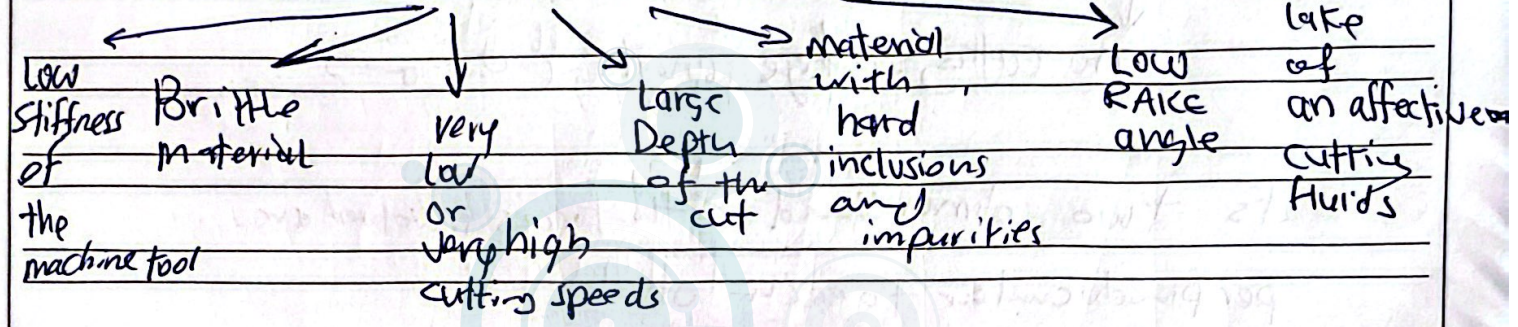 Low
stiffness
of
the
machine tool
Brittle
material
very
low
or
very high
cutting speeds
Large
Depth
of the
cut
material
with
hard
inclusions
and
impurities
Low
RAKE
angle
lake
of
an affective
cutting
fluids